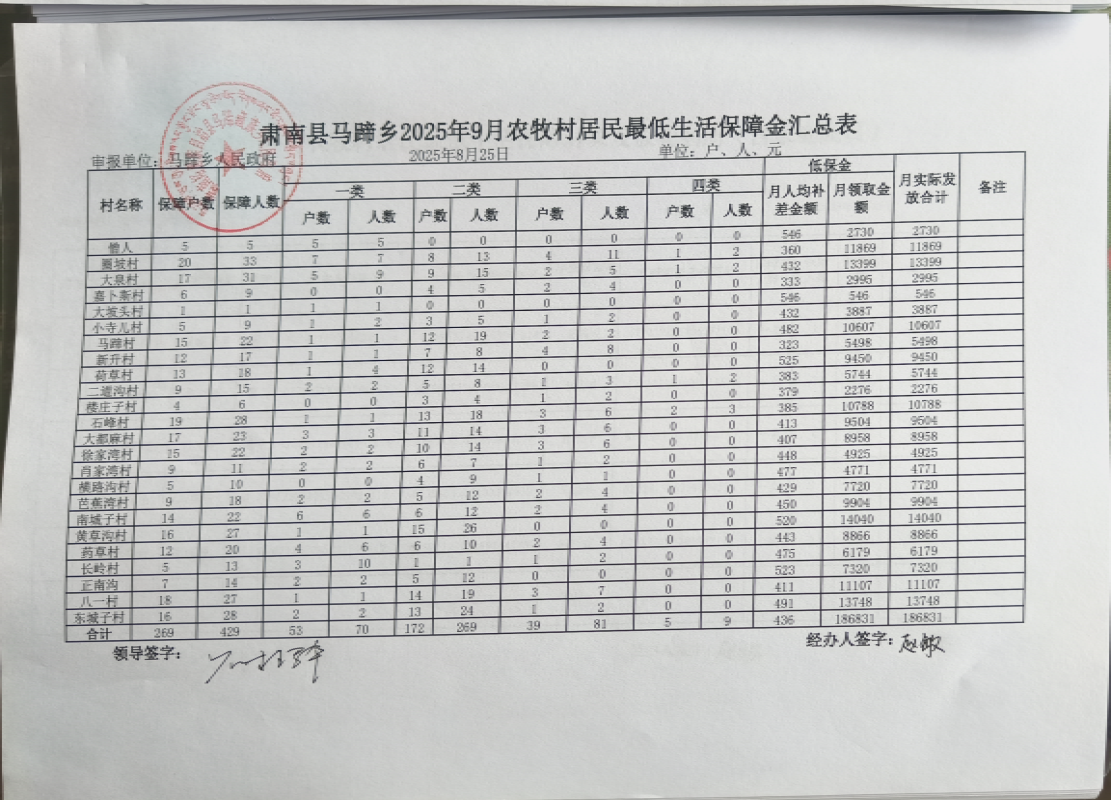 肃南县马蹄乡2025年9月农牧村居民最低生活保障金汇总表
审报单位：马蹄乡人民政府 2025年8月25日 单位：户、人、元
村名称 保障户数 保障人数 一类 二类 三类 四类 低保金 月实际发放合计 备注
户数 人数 户数 人数 户数 人数 户数 人数 月人均补差金额 月领取金额
僧人 5 5 5 5 0 0 0 0 0 0 546 2730 2730
圈坡村 20 33 7 7 8 13 4 11 1 2 360 11869 11869
大泉村 17 31 5 9 9 15 2 5 1 2 432 13399 13399
嘉卜斯村 6 9 0 0 4 5 2 4 0 0 333 2995 2995
大坡头村 1 1 1 1 0 0 0 0 0 0 546 546 546
小寺儿村 5 9 1 2 3 5 1 2 0 0 432 3887 3887
马蹄村 15 22 1 1 12 19 2 2 0 0 482 10607 10607
新升村 12 17 1 1 7 8 4 8 0 0 323 5498 5498
荷草村 13 18 1 4 12 14 0 0 0 0 525 9450 9450
二道沟村 9 15 2 2 5 8 1 3 1 2 383 5744 5744
楼庄子村 4 6 0 0 3 4 1 2 0 0 379 2276 2276
石峰村 19 28 1 1 13 18 3 6 2 3 385 10788 10788
大都麻村 17 23 3 3 11 14 3 6 0 0 413 9504 9504
徐家湾村 15 22 2 2 10 14 3 6 0 0 407 8958 8958
肖家湾村 9 11 2 2 6 7 1 2 0 0 448 4925 4925
横路沟村 5 10 0 0 4 9 1 1 0 0 477 4771 4771
芭蕉湾村 9 18 2 2 5 12 2 4 0 0 429 7720 7720
南城子村 14 22 6 6 6 12 2 4 0 0 450 9904 9904
黄草沟村 16 27 1 1 15 26 0 0 0 0 520 14040 14040
药草村 12 20 4 6 6 10 2 4 0 0 443 8866 8866
长岭村 5 13 3 10 1 1 1 2 0 0 475 6179 6179
正南沟 7 14 2 2 5 12 0 0 0 0 523 7320 7320
八一村 18 27 1 1 14 19 3 7 0 0 411 11107 11107
东城子村 16 28 2 2 13 24 1 2 0 0 491 13748 13748
合计 269 429 53 70 172 269 39 81 5 9 436 186831 186831
领导签字： 经办人签字：